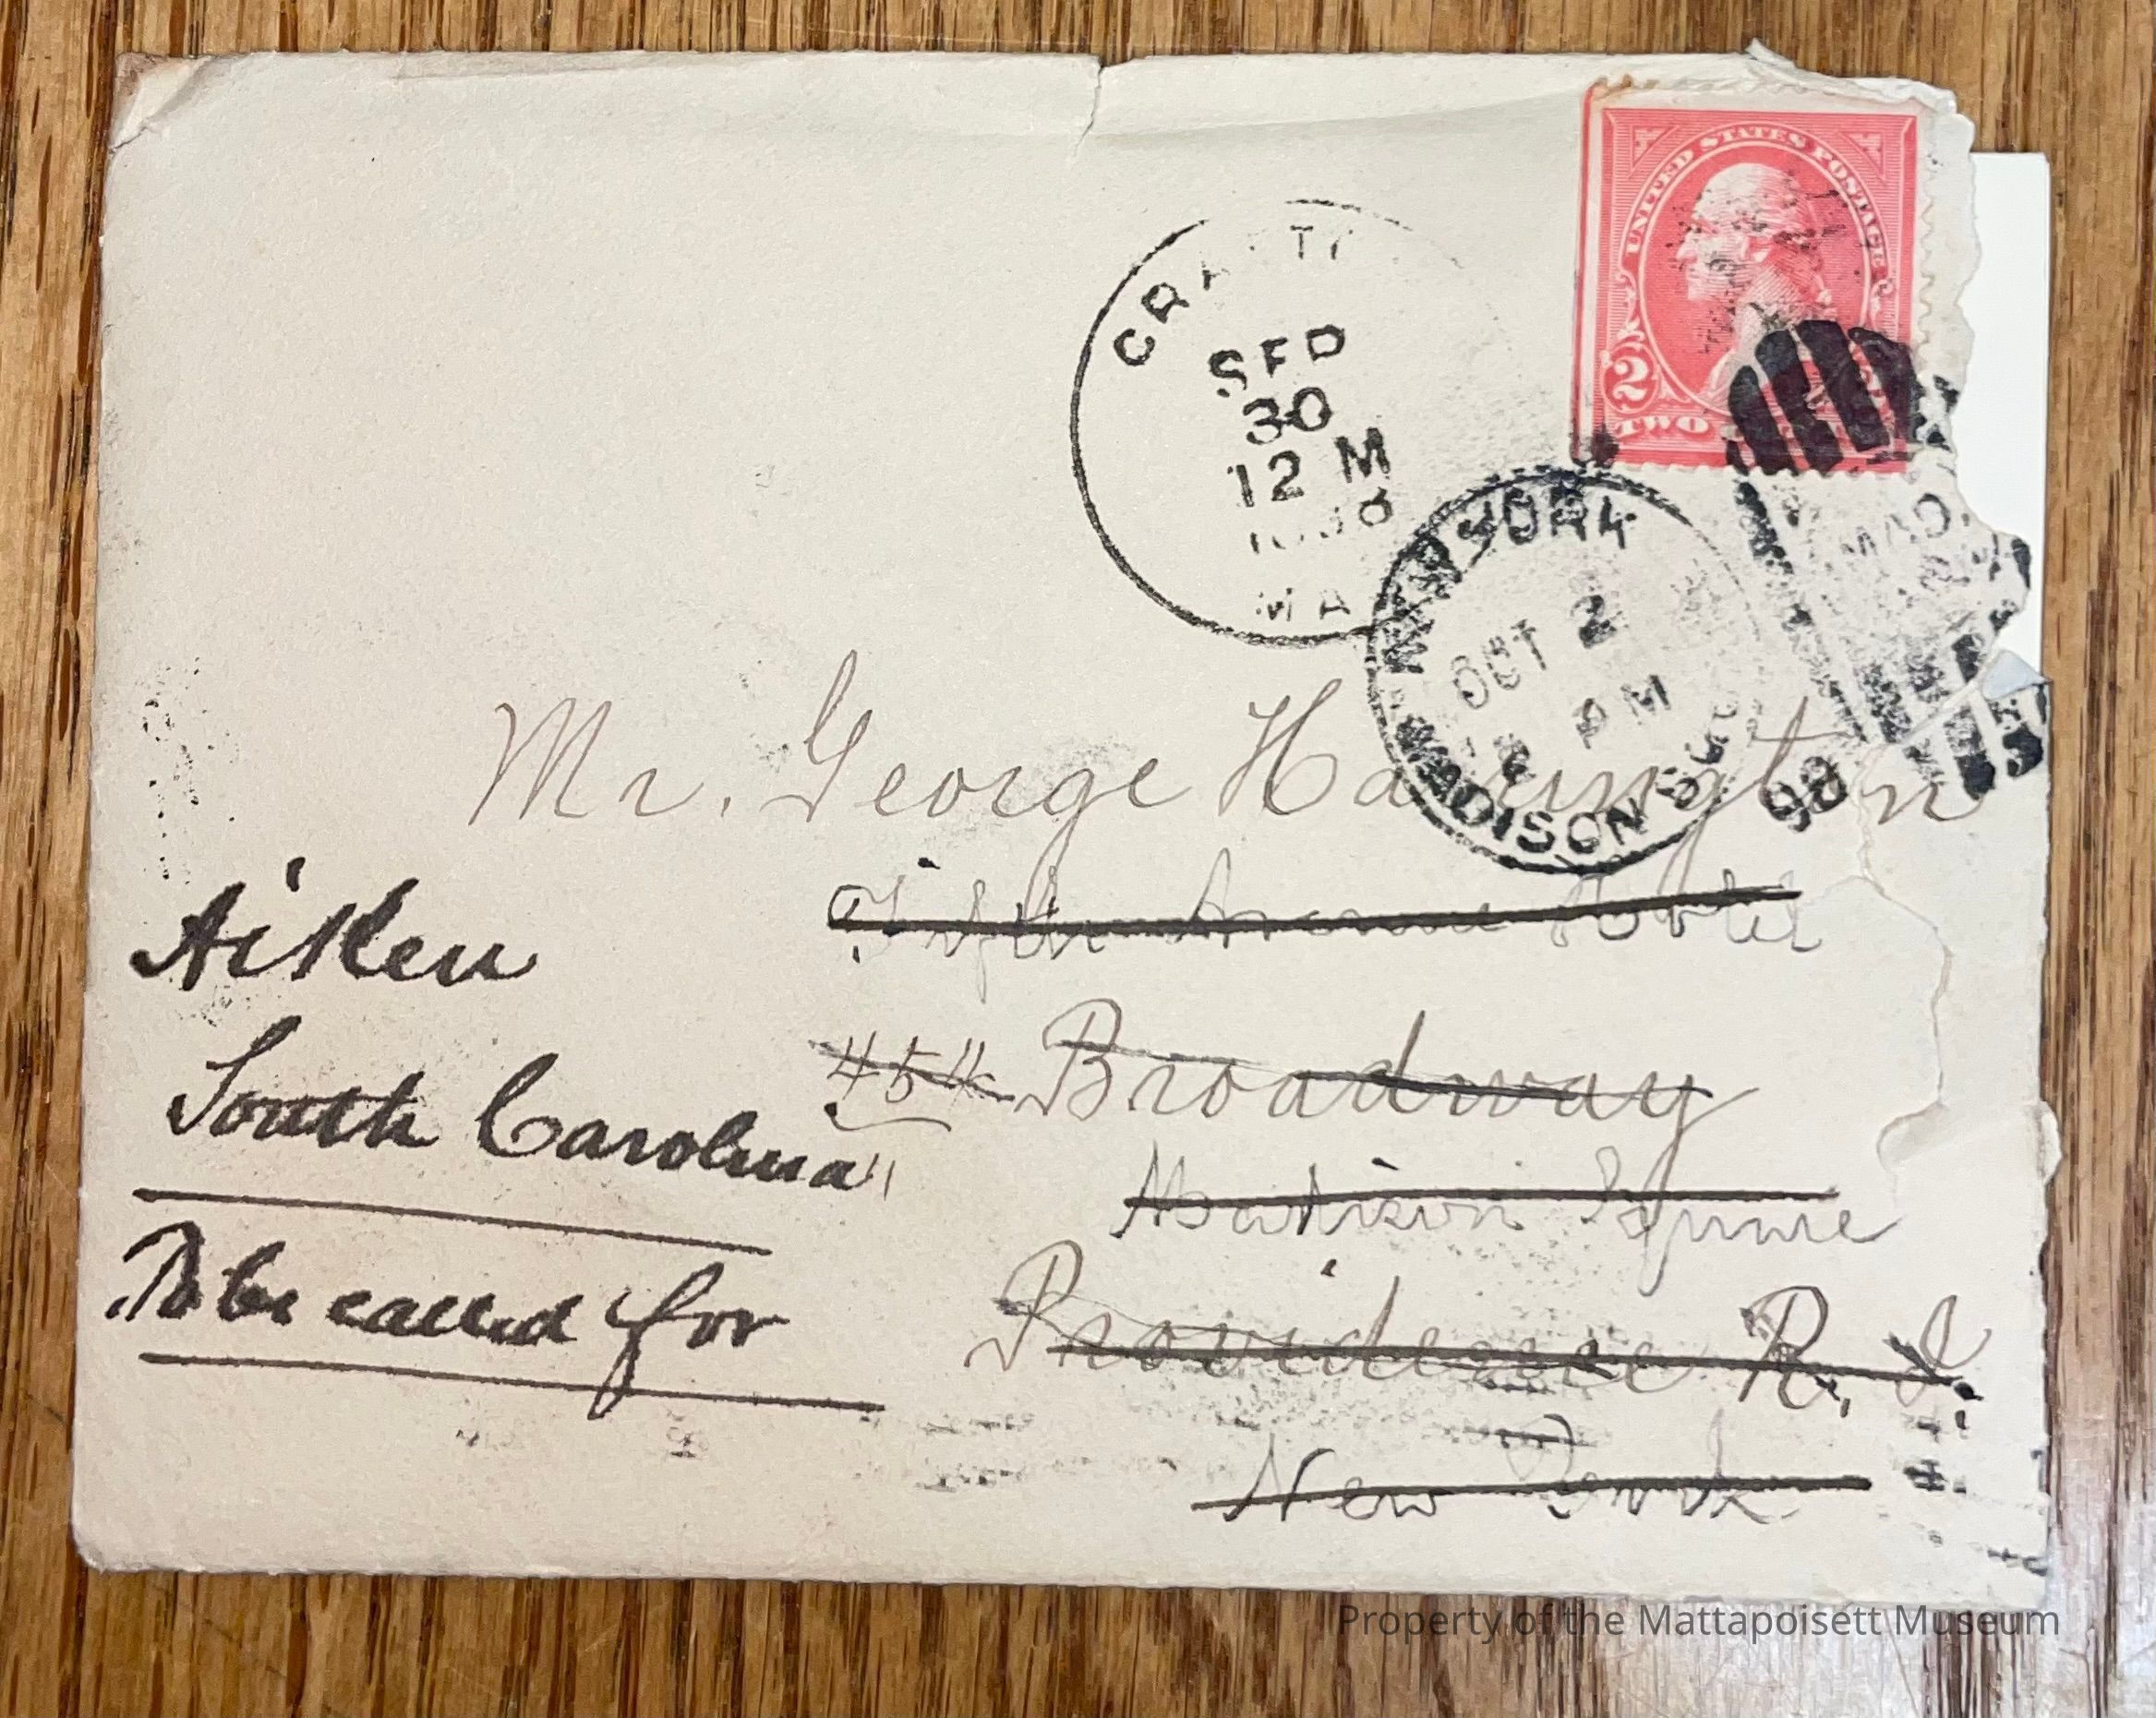 UNITED STATES POSTAGE
2
TWO
SEP
30
12 M
MA
NEW YORK
OCT 2
PM
98
MADISON SQ
Mr. George Harrington
Fifth Avenue Hotel
454 Broadway
Madison Square
Providence R. I.
New York
Aiken
South Carolina
To be called for
Property of the Mattapoisett Museum